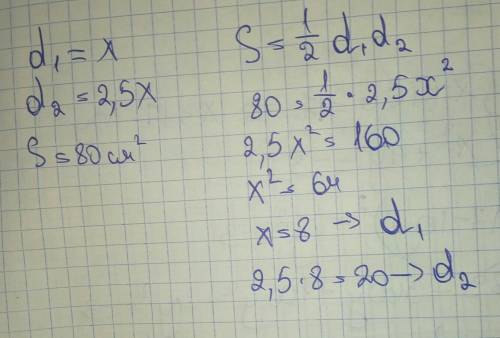 d₁ = x
d₂ = 2,5x
S = 80 см²
S = 1/2 d₁d₂
80 = 1/2 · 2,5x²
2,5x² = 160
x² = 64
x = 8 → d₁
2,5 · 8 = 20 → d₂